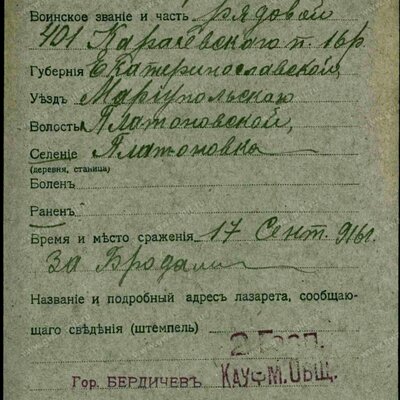 Воинское званіе и часть рядовой
401 Карачевского п. 16 р
Губернія Екатеринославской,
Уѣздъ Маріупольскаго
Волость Платоновской,
Селеніе Платоновка
(деревня, станица)
Болен
Ранен
Время и мѣсто сраженія 17 Сент. 916 г.
за Бродами
Названіе и подробный адресъ лазарета, сообщаю-
щаго свѣдѣнія (штемпель)
2 Госп.
Гор. БЕРДИЧЕВЪ КАУФМ. ОБЩ.